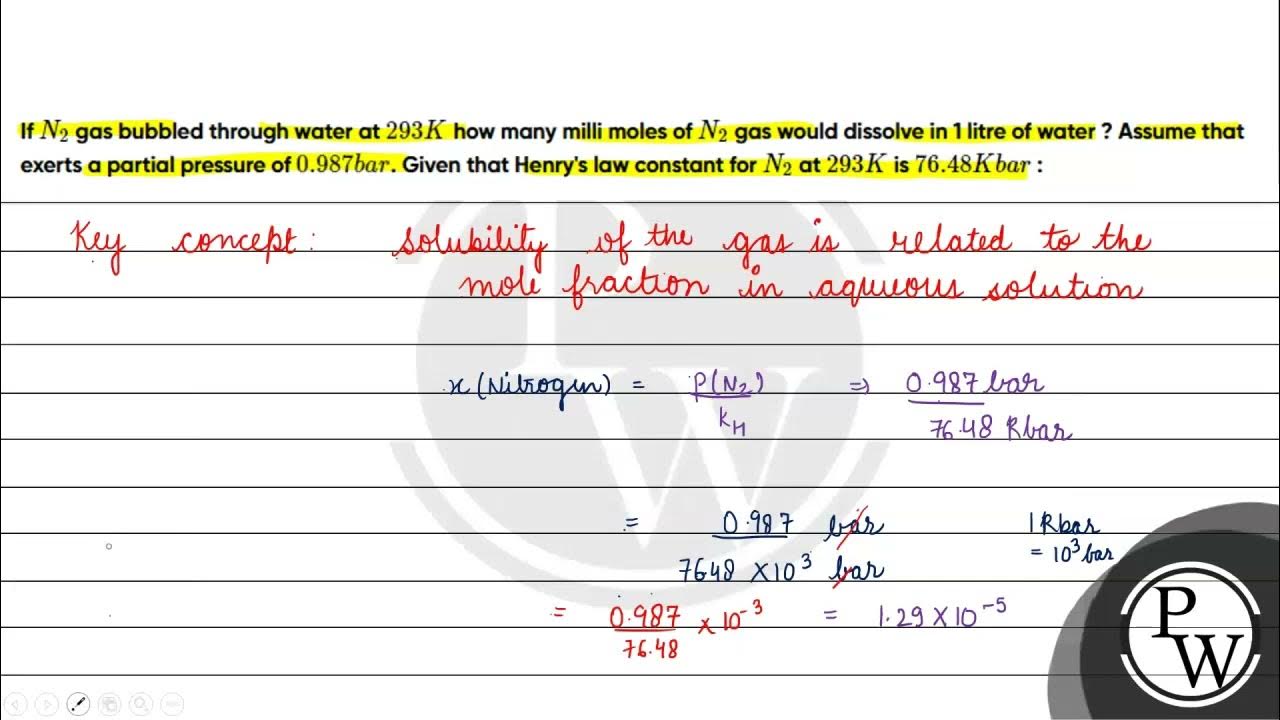 If N₂ gas bubbled through water at 293K how many milli moles of N₂ gas would dissolve in 1 litre of water ? Assume that
exerts a partial pressure of 0.987bar. Given that Henry's law constant for N₂ at 293K is 76.48Kbar :
Key concept: solubility of the gas is related to the
mole fraction in aqueous solution
x (Nitrogen) = P(N₂) / KH ⇒ 0.987 bar / 76.48 Kbar
= 0.987 bar / 7648 × 10³ bar
1 Kbar
= 10³ bar
= 0.987 / 76.48 × 10⁻³ = 1.29 × 10⁻⁵
P
W